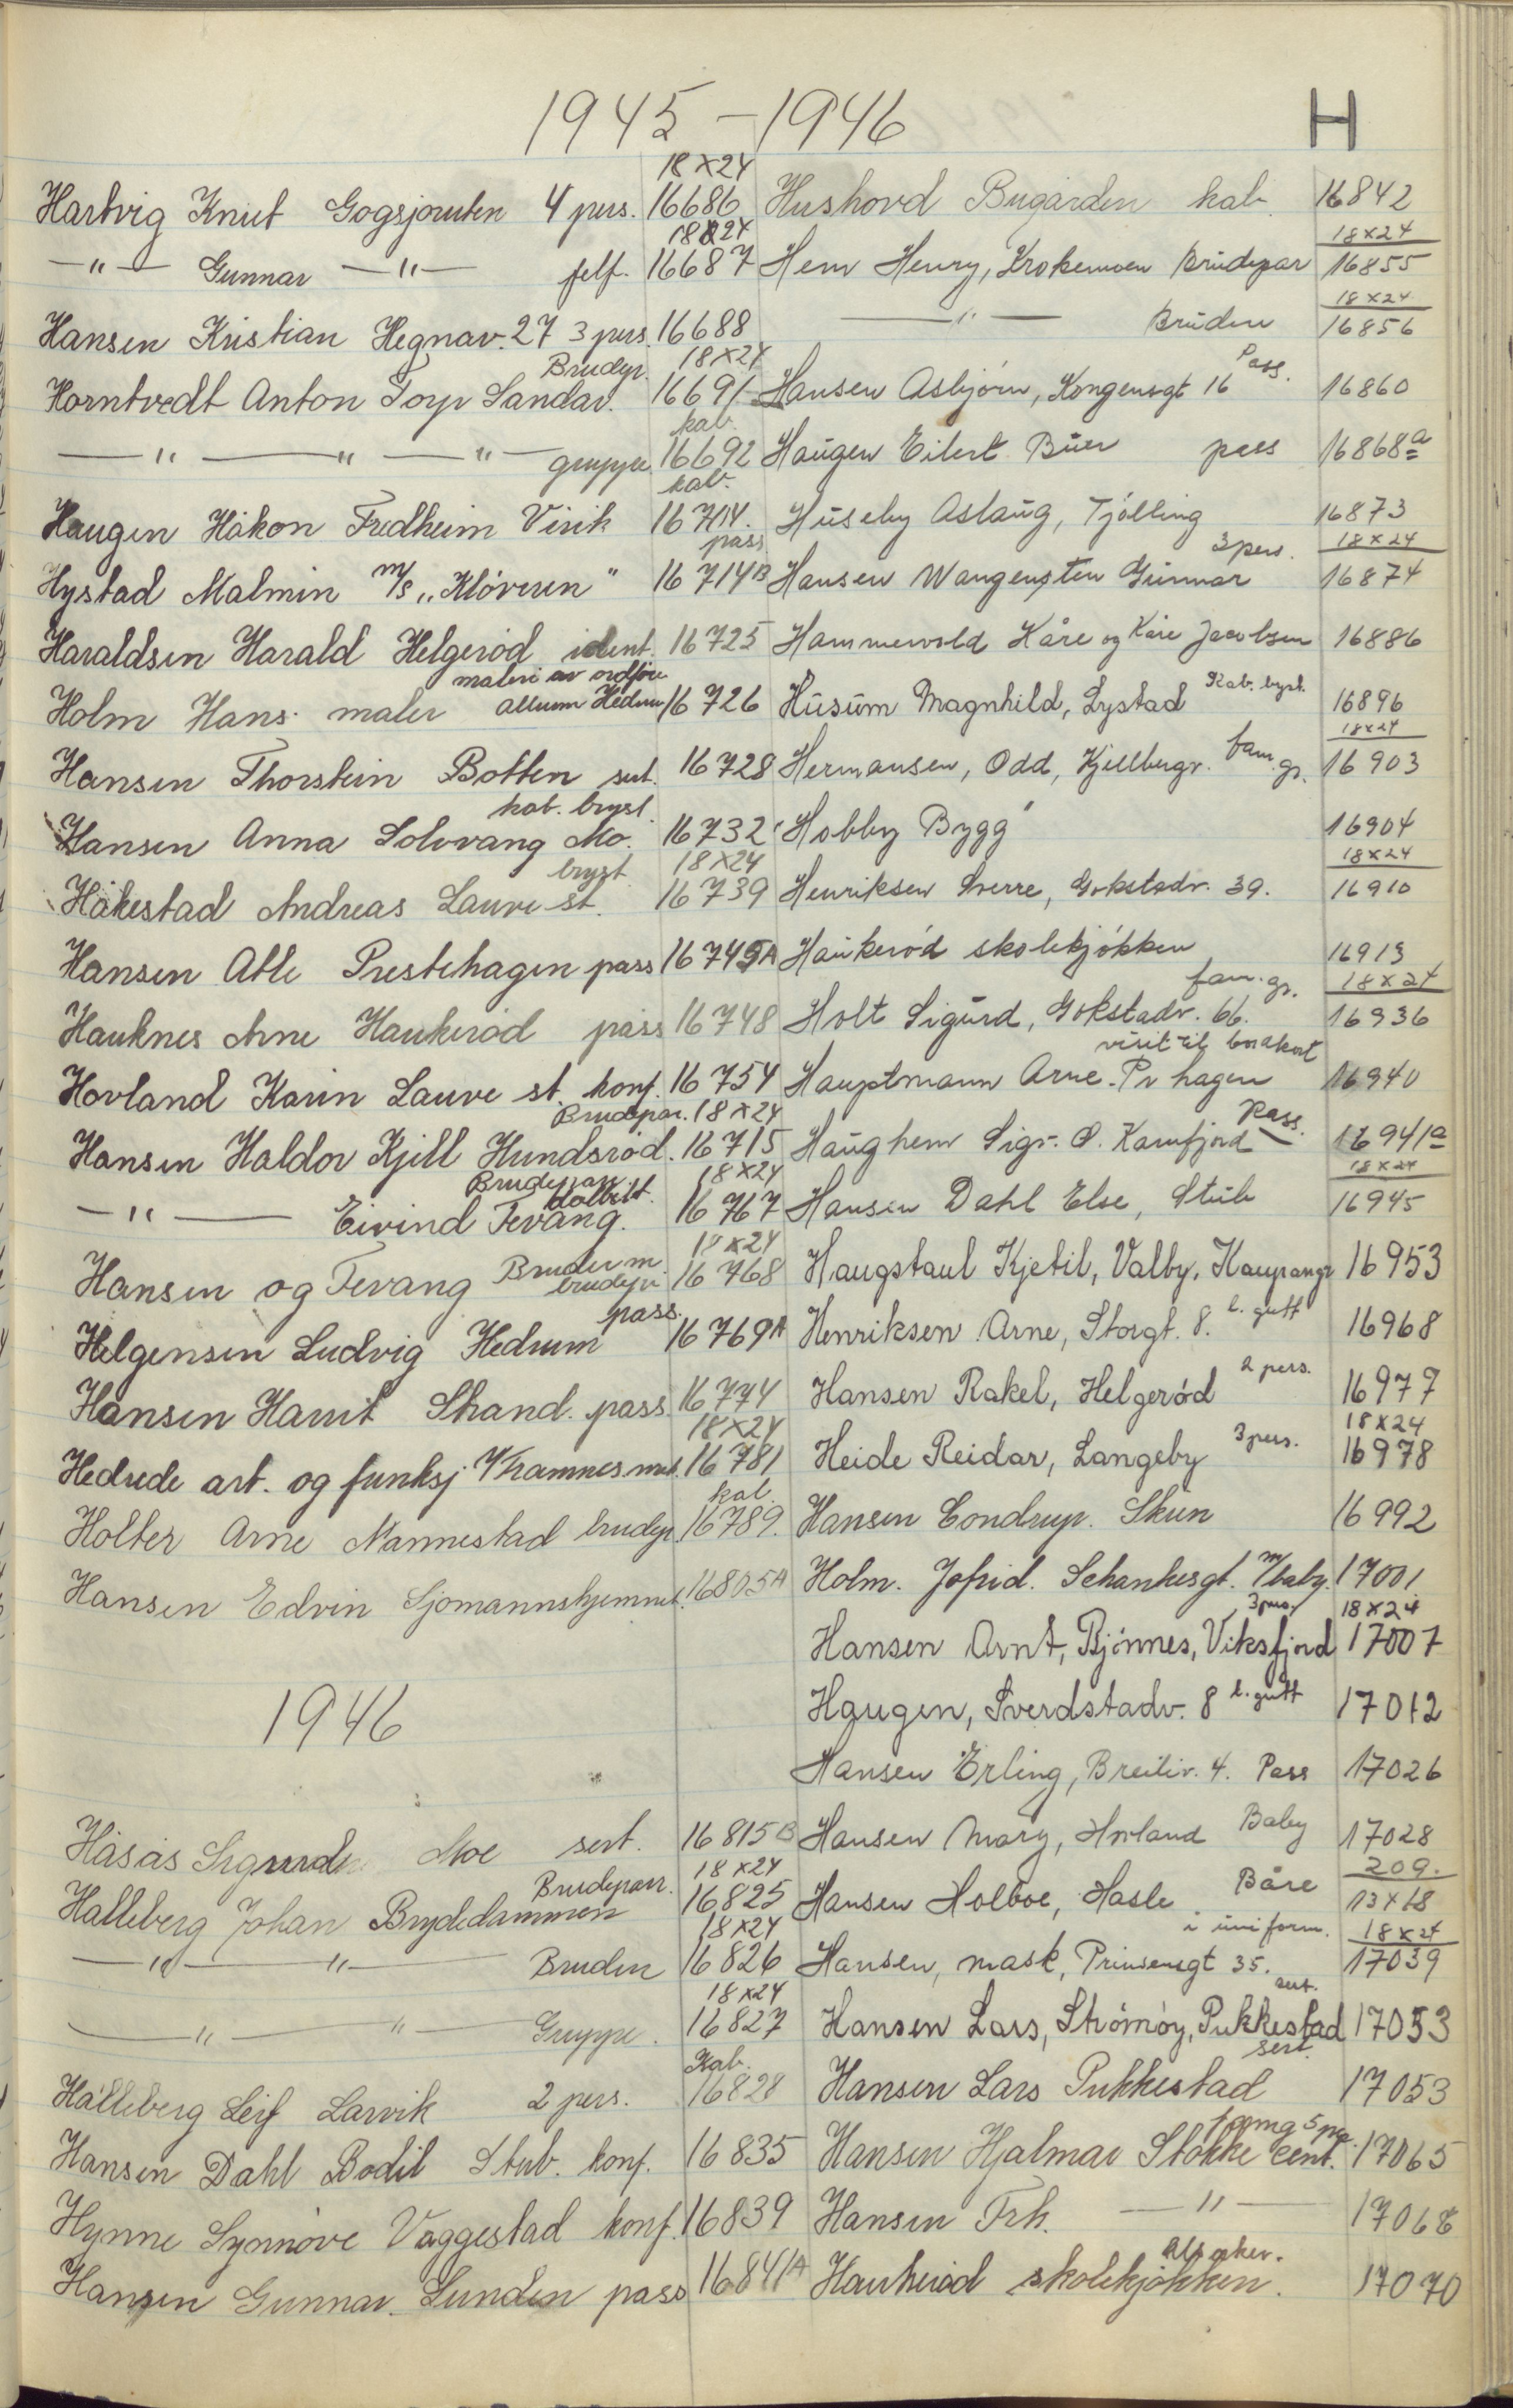 1945 – 1946
H
18×24
Hartvig Knut Gogsjordten 4 pers. 16686
18×24
—"— Gunnar —"— felf. 16687
Hansen Kristian Hegnav. 27 3 pers. 16688
Brudep. 18×24
Horntvedt Anton Torp Sandar. 16691
kab.
—"— " —"— gruppe 16692
kab.
Haugen Håkon Fredheim Virik 16714.
pass
Hystad Malmin m/s „Klöveren" 16714B
Haraldsen Harald Helgeröd ident. 16725
maleri av ordföre
Holm Hans. maler allum Hedrum 16726
Hansen Thorstein Botten sert. 16728
kab. bryst.
Hansen Anna Solvang Mo. 16732
bryst 18×24
Håkestad Andreas Lauve st. 16739
Hansen Atle Prestehagen pass 16745A
Hauknes Arne Haukeröd pass 16748
Hovland Karin Lauve st. konf. 16754
Brudepar. 18×24
Hansen Haldor Kjell Hundsröd. 16715
Brudepar dobbelt. 18×24
—"— Eivind Tevang. 16767
18×24
Hansen og Tevang Bruder m. brudep. 16768
pass.
Helgensen Ludvig Hedrum 16769A
Hansen Harriet Strand. pass. 16774
18×24
Hedrede arb. og funksj. Framnes mek. 16781
kab.
Holter Arne Nannestad brudep. 16789.
Hansen Edvin Sjömannshjemmet. 16805A
1946
Håsås Sigurd Moe sert. 16815B
Brudeparr. 18×24
Halleberg Johan Brydedammen 16825
18×24
—"— "— Bruden 16826
18×24
—"— "— Gruppe. 16827
Kab.
Halleberg Leif Larvik 2 pers. 16828
Hansen Dahl Bodil Stub. konf. 16835
Hynne Synnöve Vaggestad konf. 16839
Hansen Gunnar Lunden pass 16841A
Hushovd Bugården kab. 16842
18×24
Hem Henry, Krokemoen Brudepar 16855
18×24
—"— Bruden 16856
Pass.
Hansen Asbjörn, Kongensgt 16 16860
Haugen Eilert Buer pass 16868a
Huseby Aslaug, Tjölling 16873
3 pers. 18×24
Hansen Wangensten Gunnar 16874
Hammervold Kåre og Kåre Jacobsen 16886
Kab. byst.
Husum Magnhild, Lystad 16896
18×24
Hermansen, Odd, Kjellbergv. fam. gr. 16903
Hobby Bygg 16904
18×24
Henriksen Sverre, Gokstadv. 39. 16910
Haukeröd skolekjökken 16913
fam. gr. 18×24
Holt Sigurd, Gokstadv. 66. 16936
visit til bordkort
Hauptmann Arne. Pr hagen 16940
Pass.
Haughem Sigr. O. Kamfjord 16941a
18×24
Hansen Dahl Else, Stub 16945
Haugstaul Kjetil, Valby, Kaupangr 16953
Henriksen Arne, Storgt. 8. l. gutt 16968
2 pers.
Hansen Rakel, Helgeröd 16977
18×24
Heide Reidar, Langeby 3 pers. 16978
Hansen Condrup. Skien 16992
Holm. Jofrid. Schankesgt. m/baby. 17001.
3 pers. 18×24
Hansen Arnt, Bjönnes, Viksfjord 17007
Haugen, Sverdstadv. 8 l. gutt 17012
Hansen Erling, Breiliv. 4. Pass 17026
Hansen Mary, Hovland Baby 17028
209.
Hansen Holboe, Hasle Båre 13×18
i uniform. 18×24
Hansen, mask, Prinsensgt 35. 17039
sert.
Hansen Lars, Strömöy, Pukkestad 17053
sert.
Hansen Lars Pukkestad 17053
Hansen Hjalmar Stokke cent. 17065
Hansen Frk. —"— 17068
Haukeröd skolekjökken. 17070